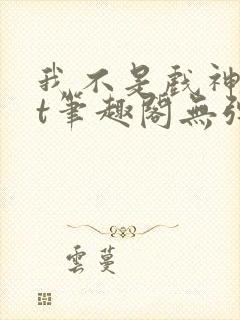 我不是戲神
t筆趣閣無
雲蔓